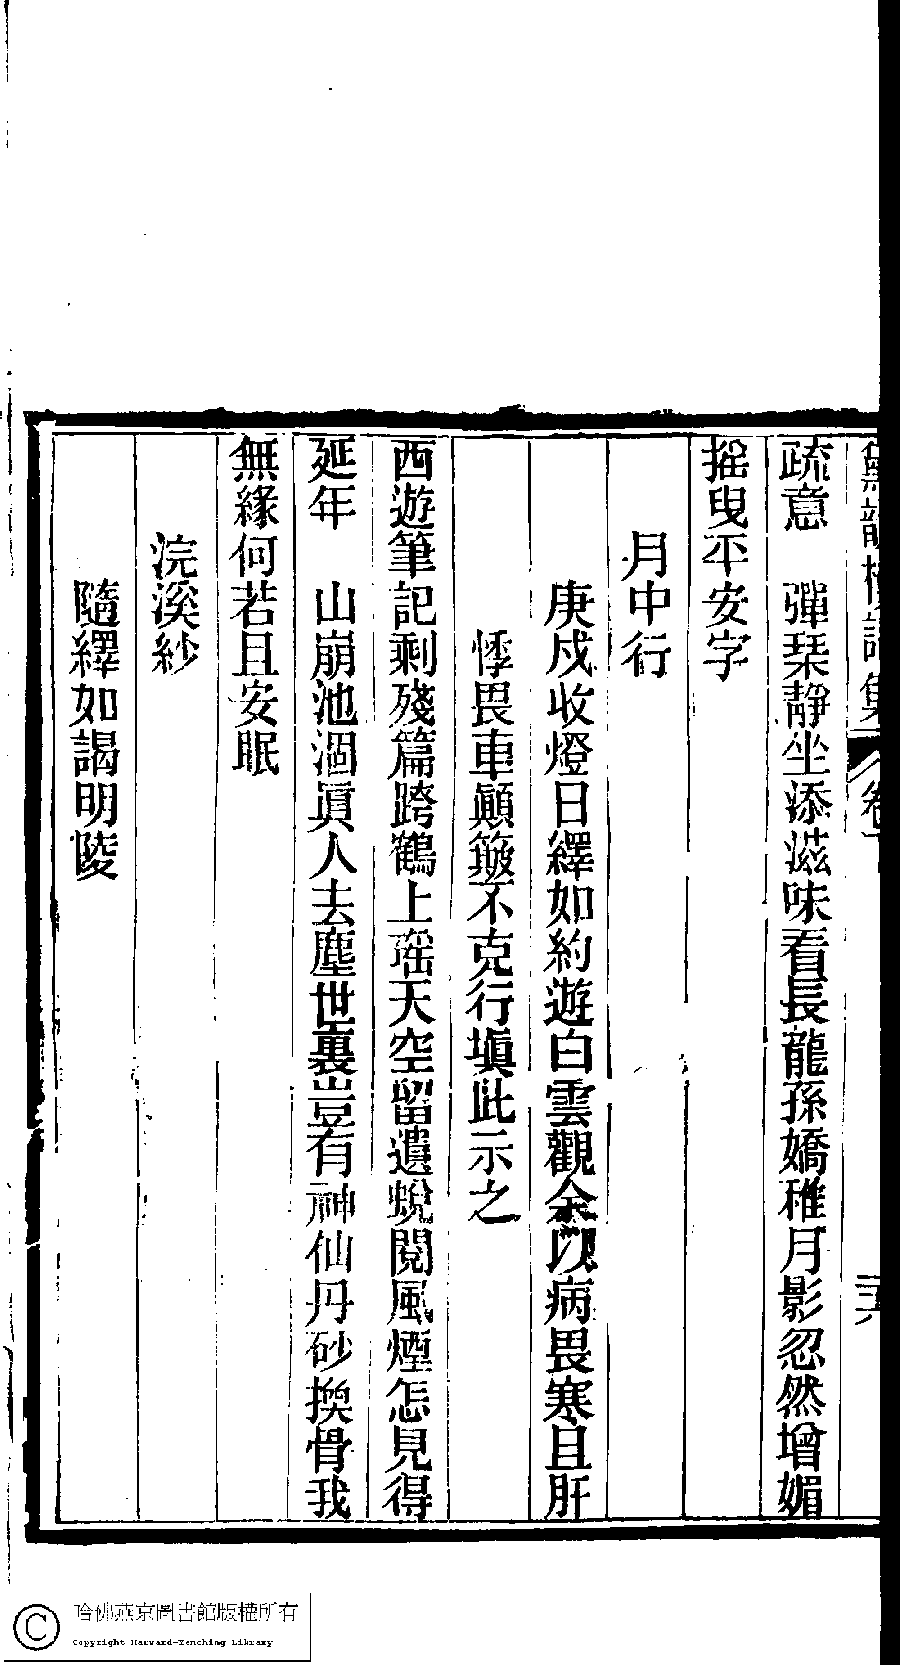 疏意　彈琹靜坐添滋味看長龍孫嬌稚月影忽然增媚
搖曳平安字
月中行
庚戍收燈日繹如約遊白雲觀余以病畏寒且肝
悸畏車顚簸不克行塡此示之
西遊筆記剩殘篇跨鶴上瑶天空留遺蛻閱風煙怎見得
延年　山崩池涸眞人去塵世裏豈有神仙丹砂換骨我
無緣何若且安眠
浣溪紗
隨繹如謁明陵
哈佛燕京圖書館版權所有
Copyright Harvard-Yenching Library